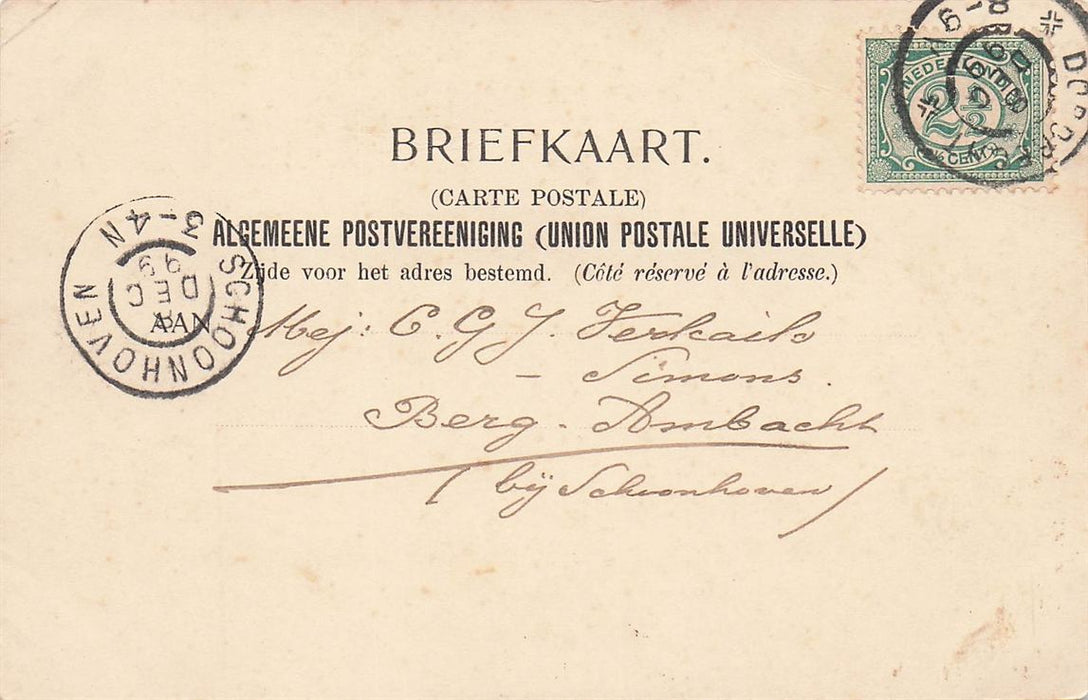 BRIEFKAART.
(CARTE POSTALE)
ALGEMEENE POSTVEREENIGING (UNION POSTALE UNIVERSELLE)
Zijde voor het adres bestemd. (Côté réservé à l'adresse.)
AAN
Mej: C. G. J. Verkaik
– Simons.
Berg-Ambacht
(bij Schoonhoven)
NEDERLAND
2½
CENT
SCHOONHOVEN
3-4N
DEC
99